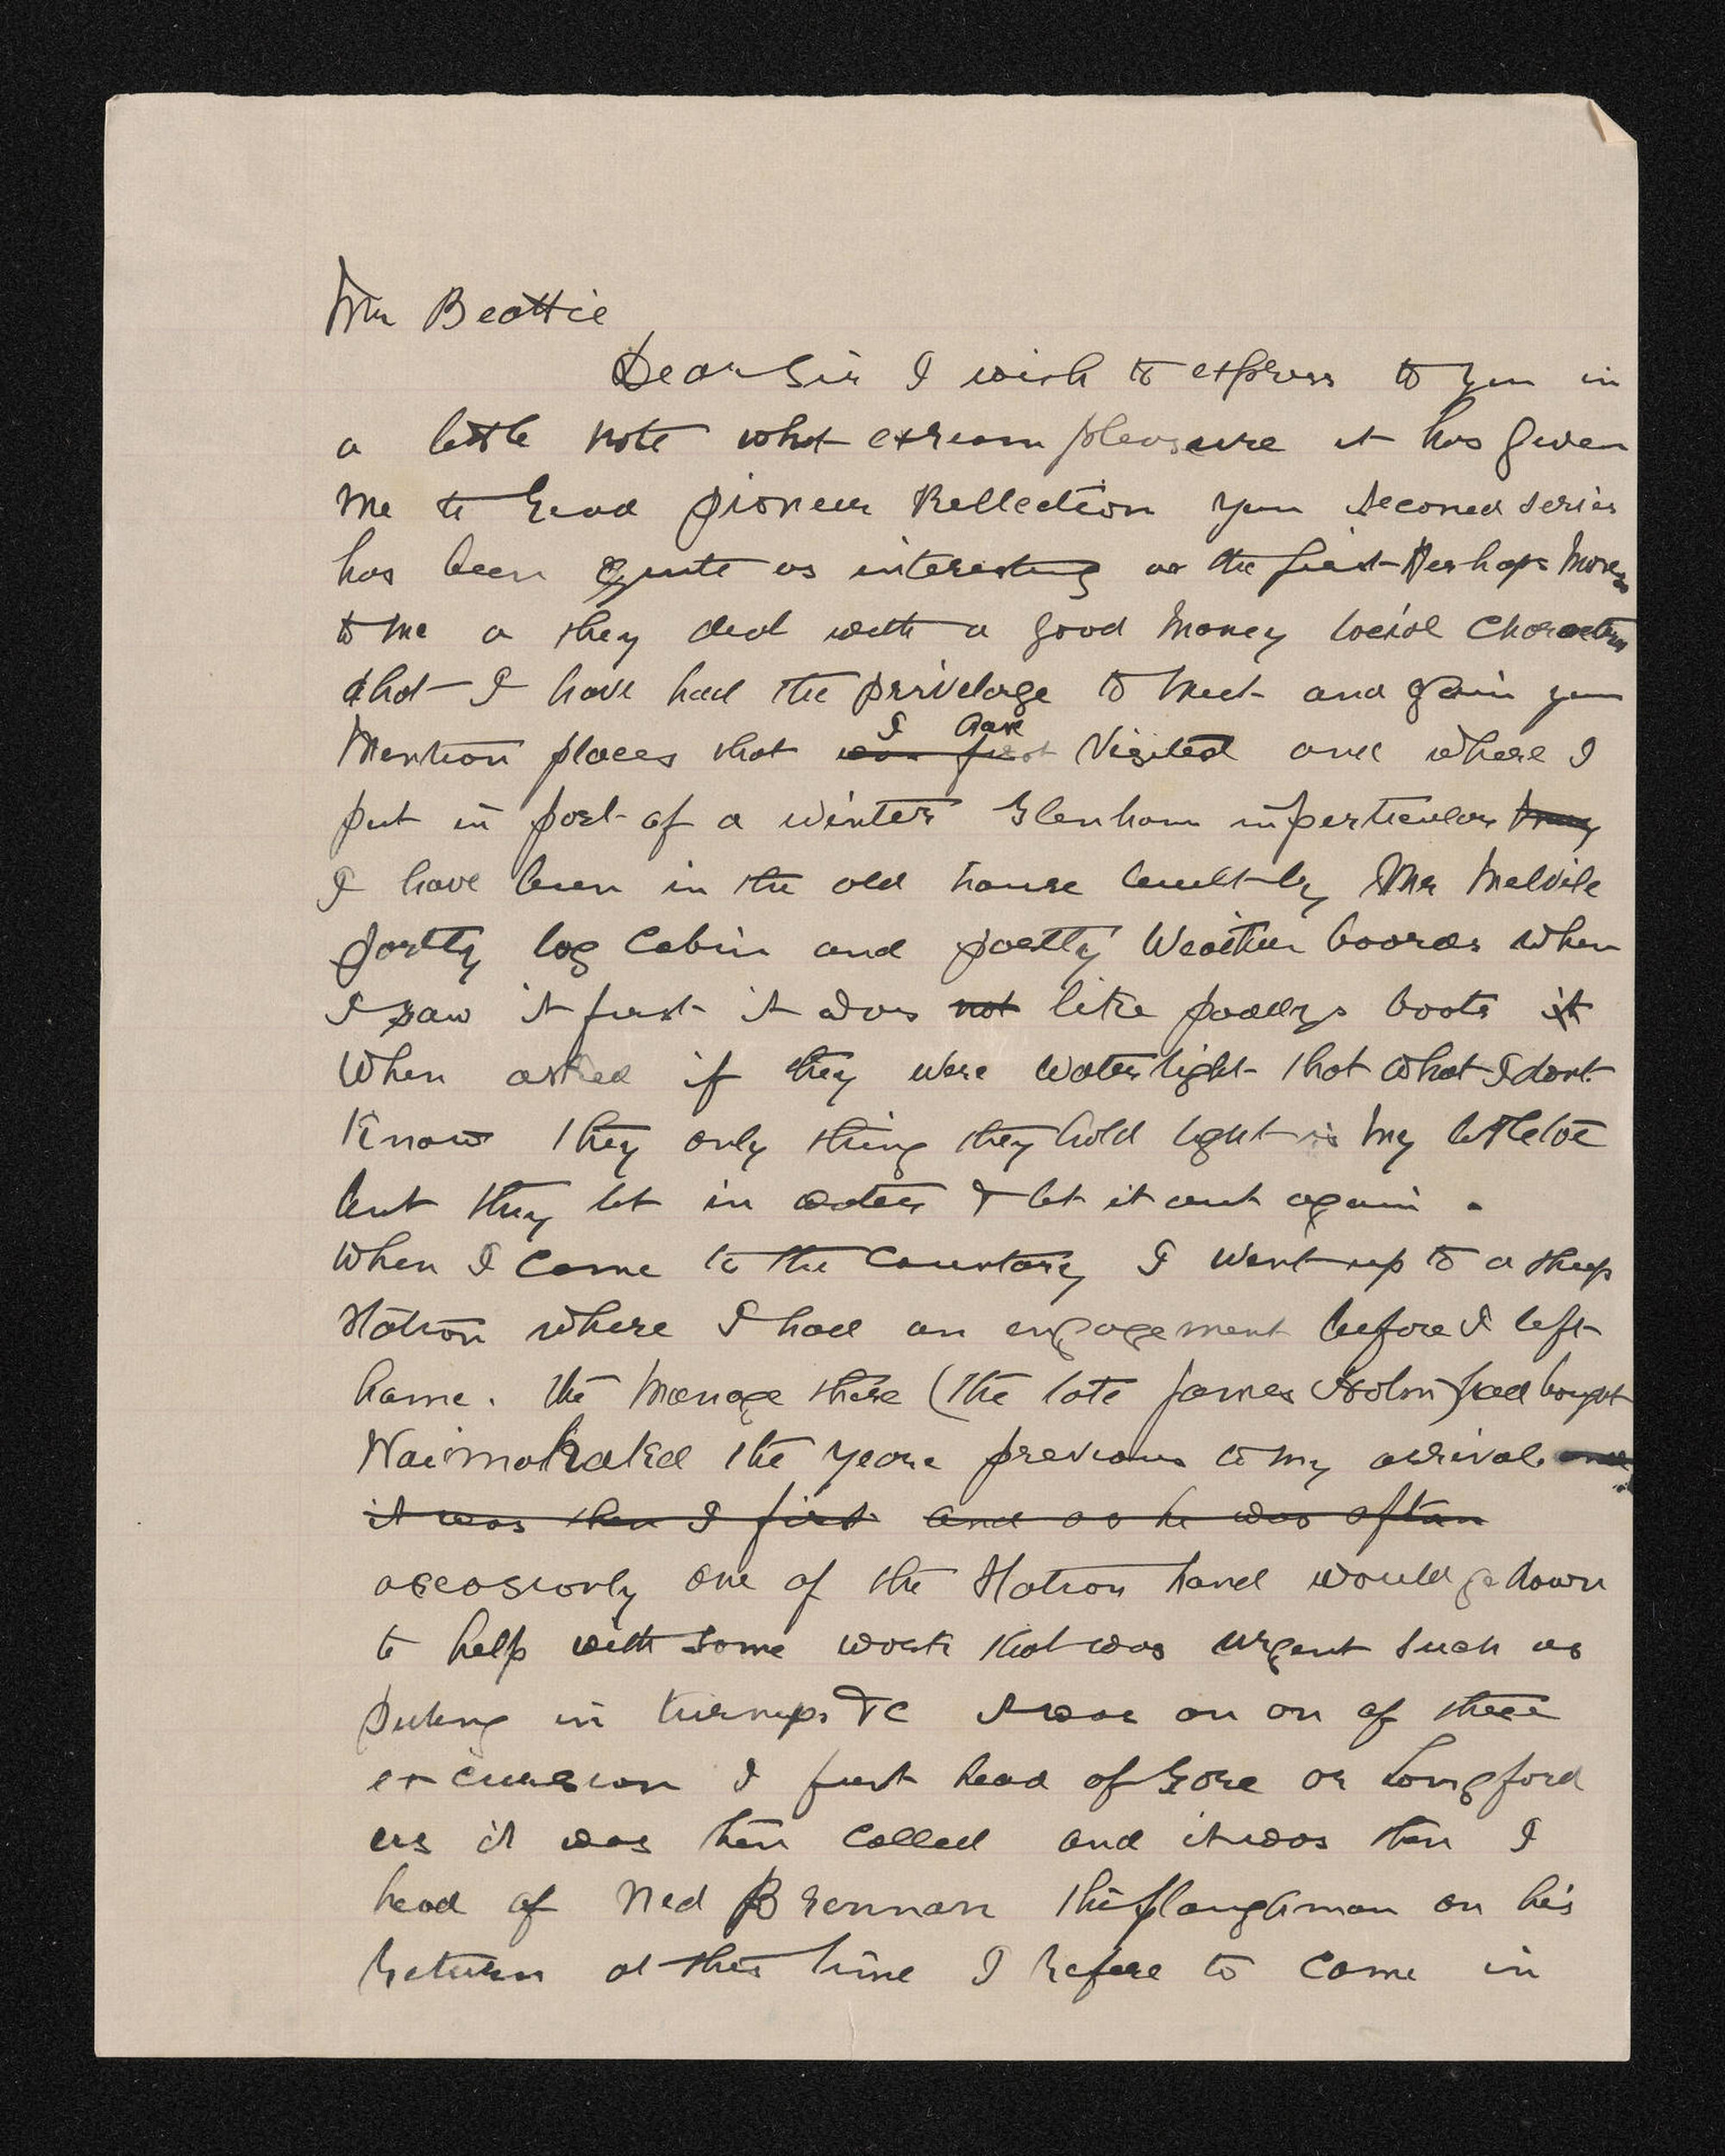 Mr Beattie
Dear Sir I wish to express to you in
a little note what extream pleasure it has given
me to read pioneer Reflection your seconed series
has been quite as interesting as the first Perhaps more so
to me a they deal with a good money local Characters
that I have had the privelage to meet and again you
Mention places that I have Visited and where I
put in part of a winter Glenham in perticular
I have been in the old house built by Mr Melvile
partly log Cabin and partly Weather boards when
I saw it first it was not like paddys boots it
When asked if they were water tight that what I dont
Know they only thing they hold tight is my little toe
but they let in water & let it out again .
When I came to the Countary I went up to a sheep
Station where I had an engagement before I left
hame . the manage there (the late James ) had bought
Waimahaka the yeare previous to my arrival
it was then I first and as he was oftan
occasionly one of the Station hand would go down
to help with some work that was urgent such as
puting in turnips &c I was on on of these
excursion I first head of Gore or Longford
as it was then called and it was then I
head of Ned Brennan the ploughman on his
return at this time I refere to came in